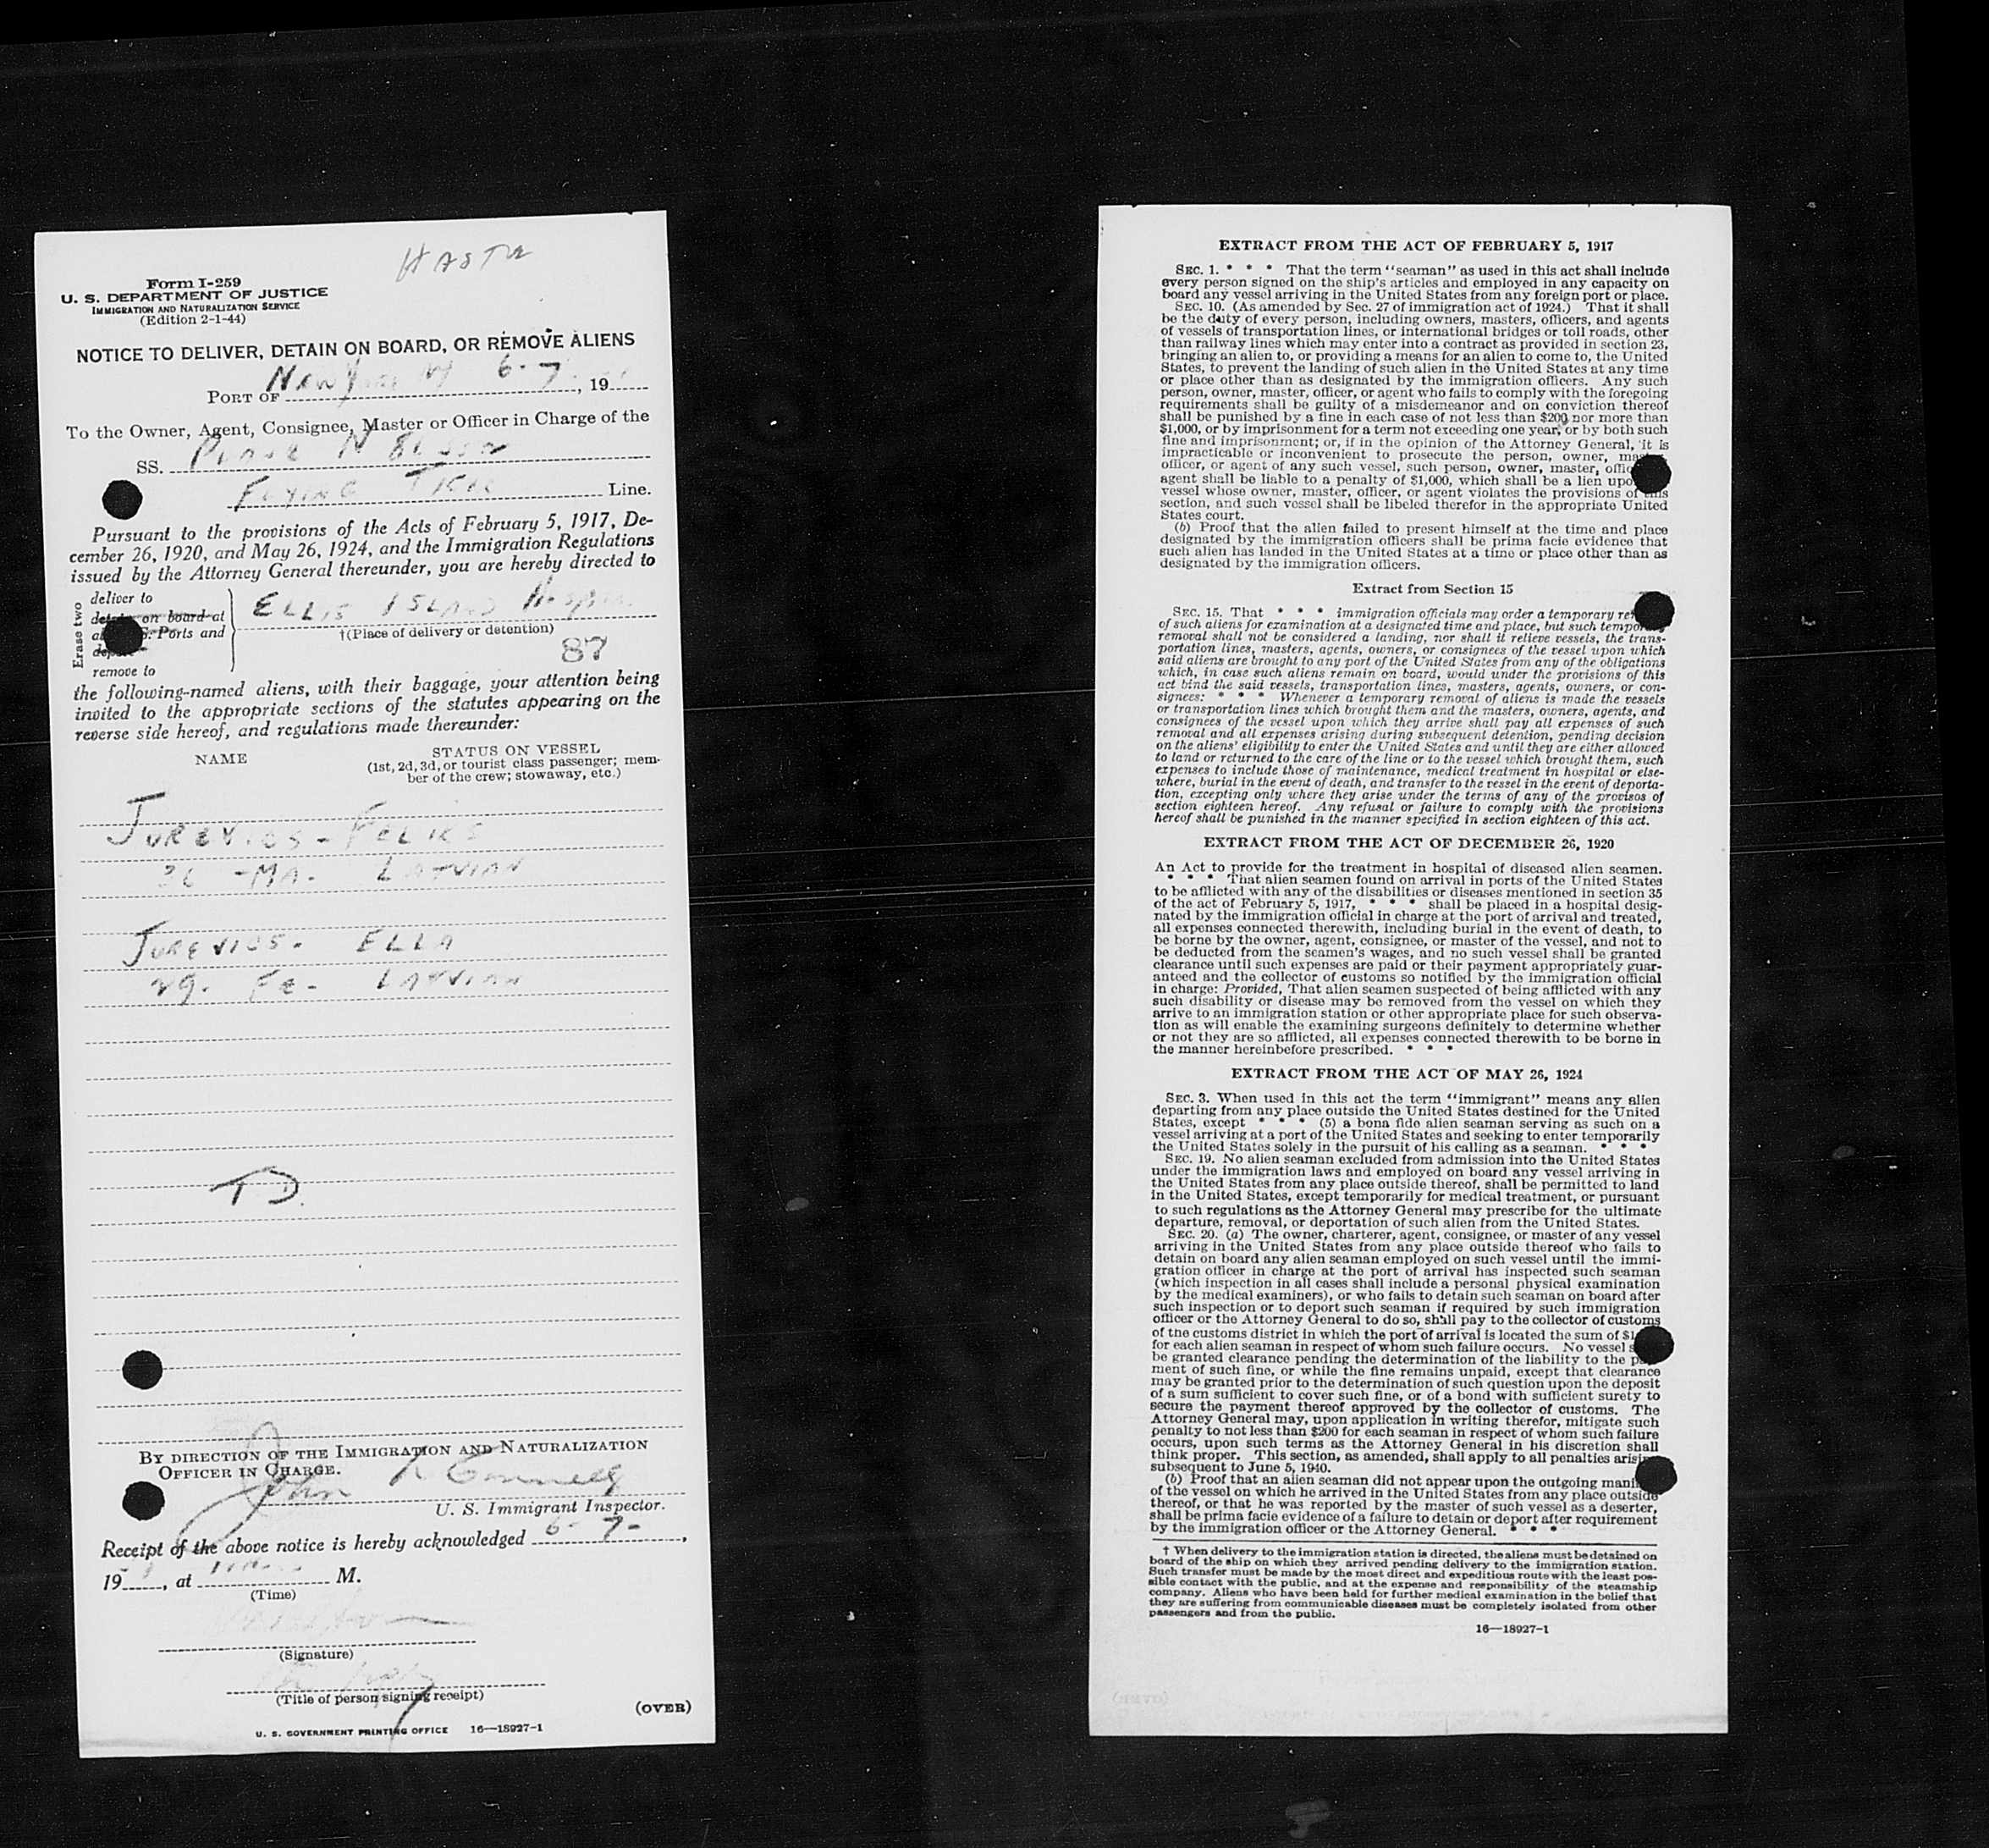 HASTA
Form I-259
U. S. DEPARTMENT OF JUSTICE
IMMIGRATION AND NATURALIZATION SERVICE
(Edition 2-1-44)
NOTICE TO DELIVER, DETAIN ON BOARD, OR REMOVE ALIENS
PORT OF New York NY 6-7, 19
To the Owner, Agent, Consignee, Master or Officer in Charge of the
SS. PLANE
FLYING Line.
Pursuant to the provisions of the Acts of February 5, 1917, De-
cember 26, 1920, and May 26, 1924, and the Immigration Regulations
issued by the Attorney General thereunder, you are hereby directed to
Erase two
deliver to
on board at
Ports and
remove to
ELLIS ISLAND
†(Place of delivery or detention)
87
the following-named aliens, with their baggage, your attention being
invited to the appropriate sections of the statutes appearing on the
reverse side hereof, and regulations made thereunder:
NAME
STATUS ON VESSEL
(1st, 2d, 3d, or tourist class passenger; mem-
ber of the crew; stowaway, etc.)
JUREVICS - FELIKS
36 - MA. LATVIAN
JUREVICS. ELLA
29. FE - LATVIAN
TD.
BY DIRECTION OF THE IMMIGRATION AND NATURALIZATION
OFFICER IN CHARGE.
John
U. S. Immigrant Inspector.
Receipt of the above notice is hereby acknowledged 6-7-,
19, at M.
(Time)
(Signature)
(Title of person signing receipt)
(OVER)
U. S. GOVERNMENT PRINTING OFFICE 16—18927-1
EXTRACT FROM THE ACT OF FEBRUARY 5, 1917
SEC. 1. * * * That the term "seaman" as used in this act shall include
every person signed on the ship's articles and employed in any capacity on
board any vessel arriving in the United States from any foreign port or place.
SEC. 10. (As amended by Sec. 27 of immigration act of 1924.) That it shall
be the duty of every person, including owners, masters, officers, and agents
of vessels of transportation lines, or international bridges or toll roads, other
than railway lines which may enter into a contract as provided in section 23,
bringing an alien to, or providing a means for an alien to come to, the United
States, to prevent the landing of such alien in the United States at any time
or place other than as designated by the immigration officers. Any such
person, owner, master, officer, or agent who fails to comply with the foregoing
requirements shall be guilty of a misdemeanor and on conviction thereof
shall be punished by a fine in each case of not less than $200 nor more than
$1,000, or by imprisonment for a term not exceeding one year, or by both such
fine and imprisonment; or, if in the opinion of the Attorney General, it is
impracticable or inconvenient to prosecute the person, owner,
officer, or agent of any such vessel, such person, owner, master,
agent shall be liable to a penalty of $1,000, which shall be a lien
vessel whose owner, master, officer, or agent violates the provisions of this
section, and such vessel shall be libeled therefor in the appropriate United
States court.
(b) Proof that the alien failed to present himself at the time and place
designated by the immigration officers shall be prima facie evidence that
such alien has landed in the United States at a time or place other than as
designated by the immigration officers.
Extract from Section 15
SEC. 15. That * * * immigration officials may order a temporary
of such aliens for examination at a designated time and place, but such temporary
removal shall not be considered a landing, nor shall it relieve vessels, the trans-
portation lines, masters, agents, owners, or consignees of the vessel upon which
said aliens are brought to any port of the United States from any of the obligations
which, in case such aliens remain on board, would under the provisions of this
act bind the said vessels, transportation lines, masters, agents, owners, or con-
signees: * * * Whenever a temporary removal of aliens is made the vessels
or transportation lines which brought them and the masters, owners, agents, and
consignees of the vessel upon which they arrive shall pay all expenses of such
removal and all expenses arising during subsequent detention, pending decision
on the aliens' eligibility to enter the United States and until they are either allowed
to land or returned to the care of the line or to the vessel which brought them, such
expenses to include those of maintenance, medical treatment in hospital or else-
where, burial in the event of death, and transfer to the vessel in the event of deporta-
tion, excepting only where they arise under the terms of any of the provisos of
section eighteen hereof. Any refusal or failure to comply with the provisions
hereof shall be punished in the manner specified in section eighteen of this act.
EXTRACT FROM THE ACT OF DECEMBER 26, 1920
An Act to provide for the treatment in hospital of diseased alien seamen.
* * * That alien seamen found on arrival in ports of the United States
to be afflicted with any of the disabilities or diseases mentioned in section 35
of the act of February 5, 1917, * * * shall be placed in a hospital desig-
nated by the immigration official in charge at the port of arrival and treated,
all expenses connected therewith, including burial in the event of death, to
be borne by the owner, agent, consignee, or master of the vessel, and not to
be deducted from the seamen's wages, and no such vessel shall be granted
clearance until such expenses are paid or their payment appropriately guar-
anteed and the collector of customs so notified by the immigration official
in charge: Provided, That alien seamen suspected of being afflicted with any
such disability or disease may be removed from the vessel on which they
arrive to an immigration station or other appropriate place for such observa-
tion as will enable the examining surgeons definitely to determine whether
or not they are so afflicted, all expenses connected therewith to be borne in
the manner hereinbefore prescribed. * * *
EXTRACT FROM THE ACT OF MAY 26, 1924
SEC. 3. When used in this act the term "immigrant" means any alien
departing from any place outside the United States destined for the United
States, except * * * (5) a bona fide alien seaman serving as such on a
vessel arriving at a port of the United States and seeking to enter temporarily
the United States solely in the pursuit of his calling as a seaman. * * *
SEC. 19. No alien seaman excluded from admission into the United States
under the immigration laws and employed on board any vessel arriving in
the United States from any place outside thereof, shall be permitted to land
in the United States, except temporarily for medical treatment, or pursuant
to such regulations as the Attorney General may prescribe for the ultimate
departure, removal, or deportation of such alien from the United States.
SEC. 20. (a) The owner, charterer, agent, consignee, or master of any vessel
arriving in the United States from any place outside thereof who fails to
detain on board any alien seaman employed on such vessel until the immi-
gration officer in charge at the port of arrival has inspected such seaman
(which inspection in all cases shall include a personal physical examination
by the medical examiners), or who fails to detain such seaman on board after
such inspection or to deport such seaman if required by such immigration
officer or the Attorney General to do so, shall pay to the collector of customs
of the customs district in which the port of arrival is located the sum of
for each alien seaman in respect of whom such failure occurs. No vessel
be granted clearance pending the determination of the liability to the
ment of such fine, or while the fine remains unpaid, except that clearance
may be granted prior to the determination of such question upon the deposit
of a sum sufficient to cover such fine, or of a bond with sufficient surety to
secure the payment thereof approved by the collector of customs. The
Attorney General may, upon application in writing therefor, mitigate such
penalty to not less than $200 for each seaman in respect of whom such failure
occurs, upon such terms as the Attorney General in his discretion shall
think proper. This section, as amended, shall apply to all penalties arising
subsequent to June 5, 1940.
(b) Proof that an alien seaman did not appear upon the outgoing
of the vessel on which he arrived in the United States from any place outside
thereof, or that he was reported by the master of such vessel as a deserter,
shall be prima facie evidence of a failure to detain or deport after requirement
by the immigration officer or the Attorney General. * * *
† When delivery to the immigration station is directed, the aliens must be detained on
board of the ship on which they arrived pending delivery to the immigration station.
Such transfer must be made by the most direct and expeditious route with the least pos-
sible contact with the public, and at the expense and responsibility of the steamship
company. Aliens who have been held for further medical examination in the belief that
they are suffering from communicable diseases must be completely isolated from other
passengers and from the public.
16—18927-1